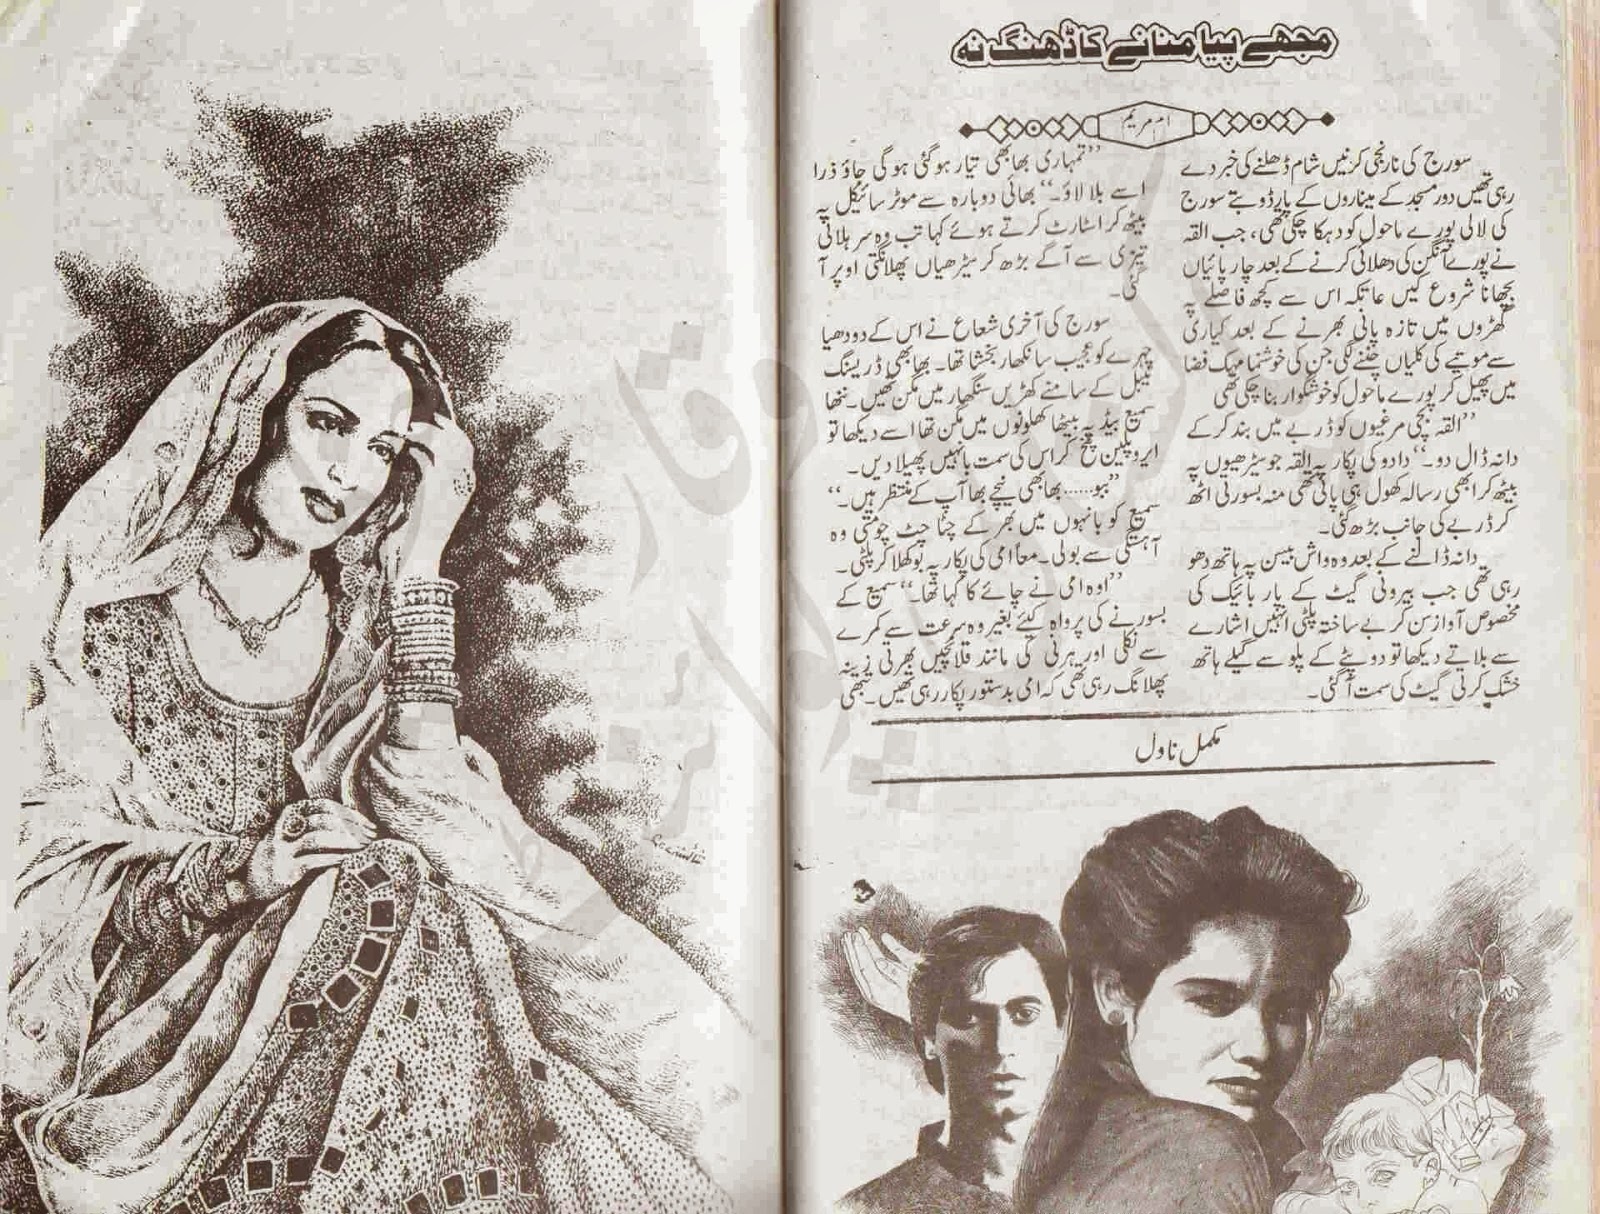 مجھے پیا منانے کا ڈھنگ نہ
ام مریم
سورج کی نارنجی کرنیں شام ڈھلنے کی خبر دے
رہی تھیں دور مسجد کے میناروں کے پار ڈوبتے سورج
کی لالی پورے ماحول کو دہکا چکی تھی، جب القہ
نے پورے آنگن کی دھلائی کرنے کے بعد چارپائیاں
بچھانا شروع کیں عاتکہ اس سے کچھ فاصلے پہ
گھڑوں میں تازہ پانی بھرنے کے بعد کیاری
سے موتیے کی کلیاں چننے لگی جن کی خوشنما مہک فضا
میں پھیل کر پورے ماحول کو خوشگوار بنا چکی تھی
”القہ بچی مرغیوں کو ڈربے میں بند کر کے
دانہ ڈال دو۔“ دادو کی پکار پہ القہ جو سیڑھیوں پہ
بیٹھ کر ابھی رسالہ کھول ہی پائی تھی منہ بسورتی اٹھ
کر ڈربے کی جانب بڑھ گئی۔
دانہ ڈالنے کے بعد وہ واش بیسن پہ ہاتھ دھو
رہی تھی جب بیرونی گیٹ کے پار بائیک کی
مخصوص آواز سن کر بے ساختہ پلٹی انہیں اشارے
سے بلاتے دیکھا تو دوپٹے کے پلو سے گیلے ہاتھ
خشک کرتی گیٹ کی سمت آ گئی۔
”تمہاری بھابھی تیار ہو گئی ہو گی جاؤ ذرا
اسے بلا لاؤ۔“ بھائی دوبارہ سے موٹر سائیکل پہ
بیٹھ کر اسٹارٹ کرتے ہوئے کہا تب وہ سر ہلاتی
تیزی سے آگے بڑھ کر سیڑھیاں پھلانگتی اوپر آ
گئی۔
سورج کی آخری شعاع نے اس کے دودھیا
چہرے کو عجیب سا نکھار بخشا تھا۔ بھابھی ڈریسنگ
ٹیبل کے سامنے کھڑیں سنگھار میں مگن تھیں۔ ننھا
سمیع بیڈ پہ بیٹھا کھلونوں میں مگن تھا اسے دیکھا تو
ایروپلین پٹخ کر اس کی سمت بانہیں پھیلا دیں۔
”ببو...... بھابھی نیچے بھا آپ کے منتظر ہیں۔“
سمیع کو بانہوں میں بھر کے چٹا چٹ چومتی وہ
آہستگی سے بولی۔ معاً امی کی پکار پہ بوکھلا کر پلٹی۔
”اوہ امی نے چائے کا کہا تھا۔“ سمیع کے
بسورنے کی پرواہ کیئے بغیر وہ سرعت سے کمرے
سے نکلی اور ہرنی کی مانند قلانچیں بھرتی زینہ
پھلانگ رہی تھی کہ امی بدستور پکار رہی تھیں۔ سبھی
مکمل ناول